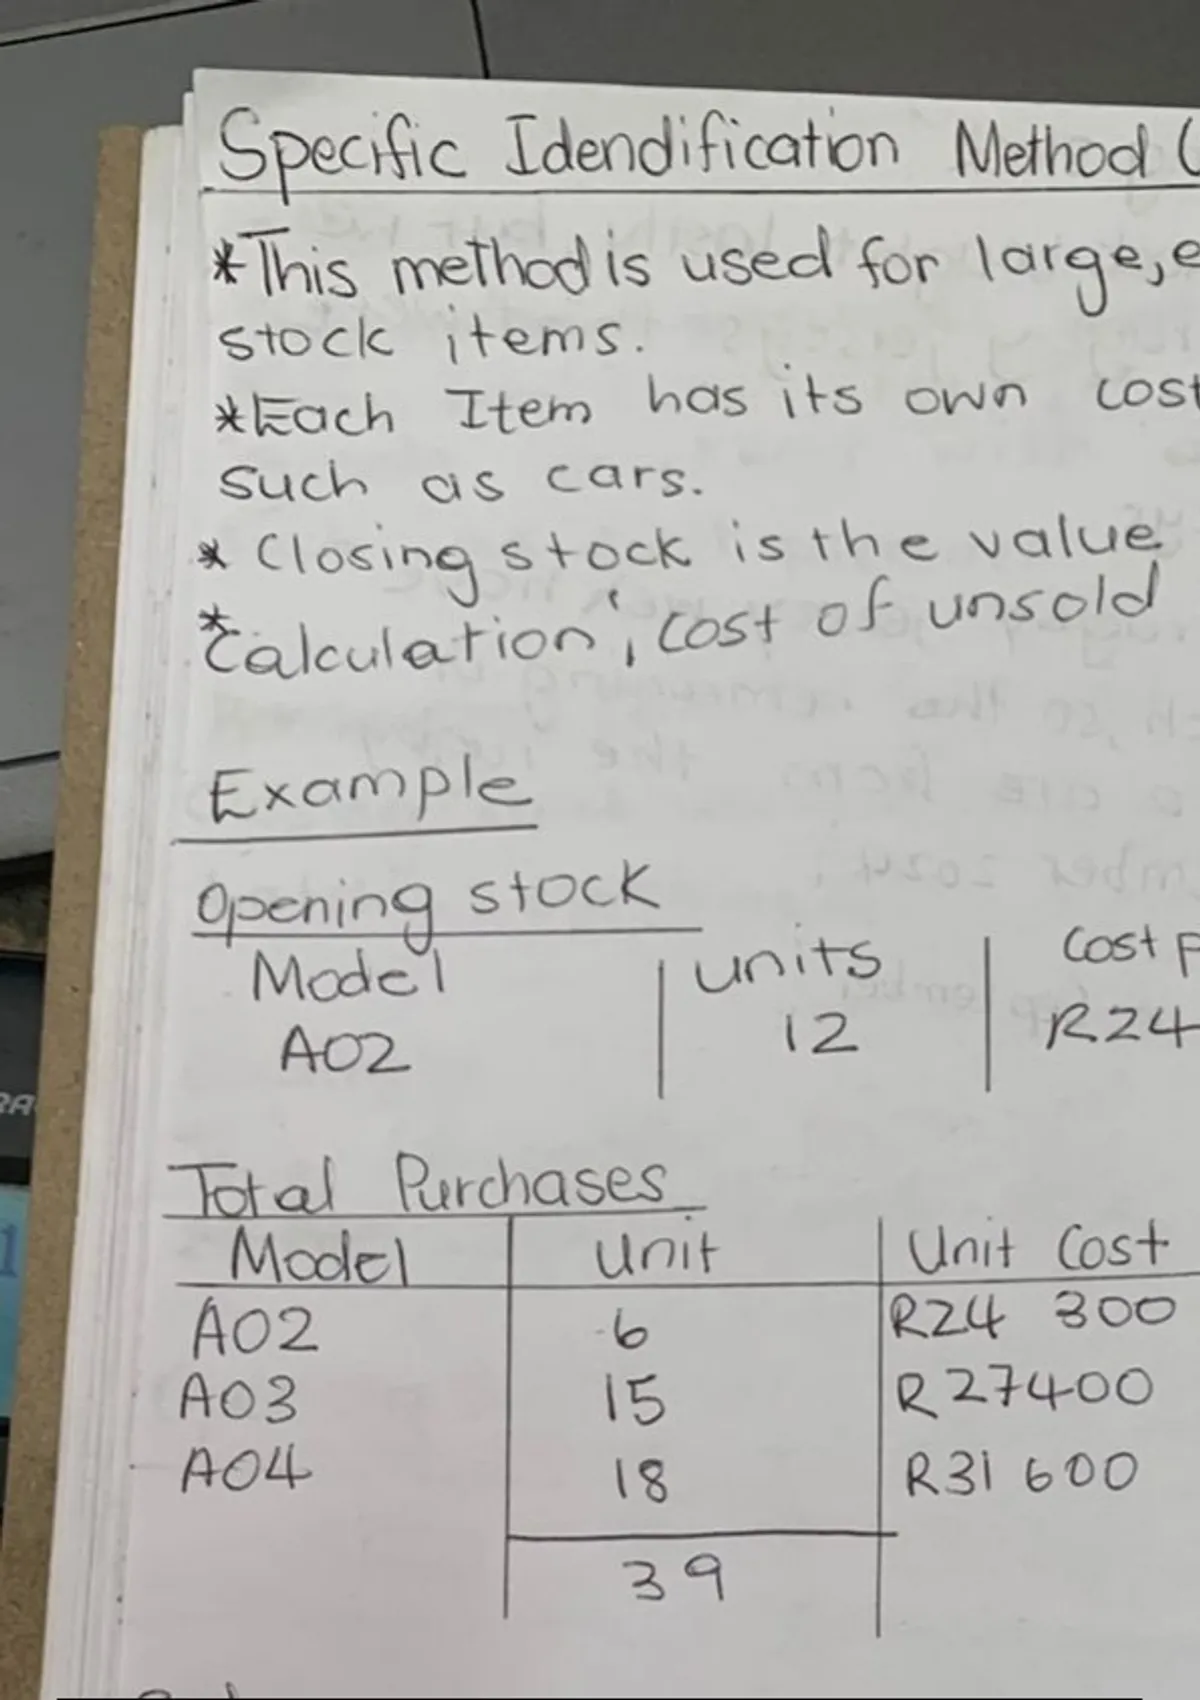 Specific Idendification Method (
*This method is used for large, e
stock items.
*Each Item has its own cost
such as cars.
* Closing stock is the value
*Calculation; cost of unsold
Example
Opening stock
Model | units | Cost p
A02 12 R24
Total Purchases
Model Unit Unit Cost
A02 6 R24 300
A03 15 R27400
A04 18 R31 600
39